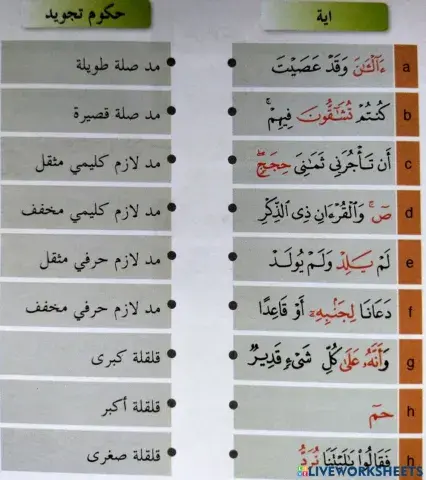 اية
حكوم تجويد
a ءَآلْـَٔـٰنَ وَقَدْ عَصَيْتَ
مد صلة طويلة
b كُنتُمْ تُشَـٰٓقُّونَ فِيهِمْ ۚ
مد صلة قصيرة
c أَن تَأْجُرَنِى ثَمَـٰنِىَ حِجَجٍ ۖ
مد لازم كليمي مثقل
d صٓ ۚ وَٱلْقُرْءَانِ ذِى ٱلذِّكْرِ
مد لازم كليمي مخفف
e لَمْ يَلِدْ وَلَمْ يُولَدْ
مد لازم حرفي مثقل
f دَعَانَا لِجَنۢبِهِۦٓ أَوْ قَاعِدًا
مد لازم حرفي مخفف
g وَأَنَّهُۥ عَلَىٰ كُلِّ شَىْءٍ قَدِيرٌ
قلقلة كبرى
h حمٓ
قلقلة أكبر
h فَقَالُوا۟ يَـٰلَيْتَنَا نُرَدُّ
قلقلة صغرى
LIVEWORKSHEETS